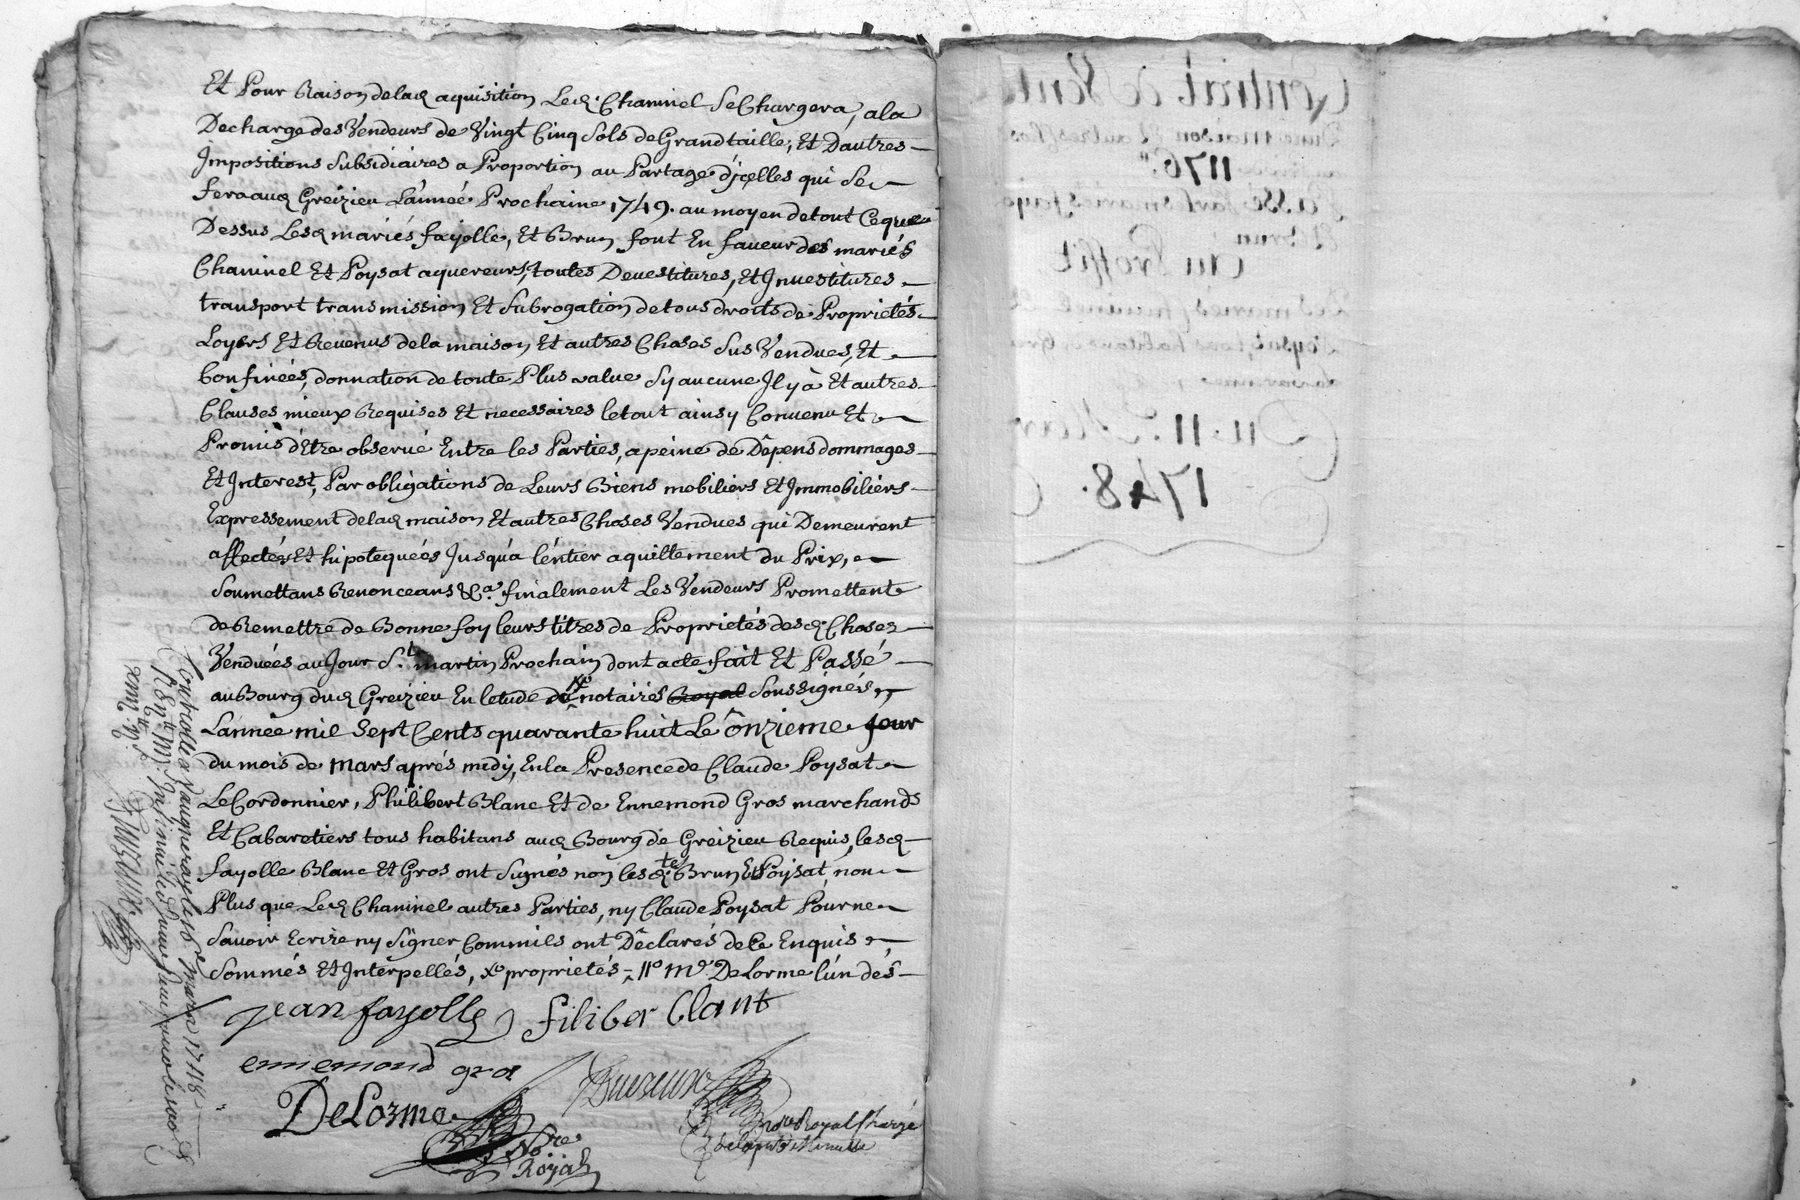 Et Pour Raison delad aquisition Led. Chaninel Se Chargera, ala
Decharge des Vendeurs de Vingt Cinq Sols de Grand taille, Et Dautres
Impositions Subsidiaires a Proportion au Partage d'jcelles qui Se
fera aud Greizieu L'année Prochaine 1749. au moyen de tout Ceque
Dessus Lesd mariés fayolle, Et Brun font En faveur des mariés
Chaninel Et Poysat aquereurs, toutes Devestitures, Et Investitures
transport transmission Et Subrogation de tous droits de Proprietés
Loyers Et Revenus de la maison Et autres Choses Sus Vendues, Et
Confinées, donnation de toute Plus value Sy aucune Jl y à Et autres
Clauses mieux Requises Et necessaires le tout ainsy Convenu Et
Promis d'Etre observé Entre les Parties, a peine de Dêpens dommages
Et Interest, Par obligations de Leurs Biens mobiliers Et Immobiliers
Expressement delad maison Et autres Choses Vendues qui Demeurent
affectés Et hipotequées Jusqu'a l'entier aquittement du Prix,
Soumettans Renonceans &a. finalement Les Vendeurs Promettent
de Remettre de Bonne foy leurs titres de Proprietés desd. Choses
Venduées au Jour St. martin Prochain dont acte fait Et Passé
au Bourg dud Greizieu En letude notaires Royal Soussignés
L'année mil Sept Cents quarante huit Le ônzieme Jour
du mois de mars aprés midy, En la Presence de Claude Poysat
Le Cordonnier, Philibert Blanc Et de Ennemond Gros marchands
Et Cabaretiers tous habitans aud Bourg de Greizieu Requis, lesd
fayolle Blanc Et Gros ont Signés non lesd. Brun Et Poysat, non
Plus que Led Chaninel autres Parties, ny Claude Poysat Pour ne
Savoir Ecrire ny Signer Comm'ils ont Dêclarés de Ce Enquis
Sommés Et Interpellés, xo proprietés = 11o me DeLorme l'un dés
jean fayolle filiber blant
ennemond gros
DeLorme
Nore
Royal
nore Royal Chargé
dela pnte Minutte
Controllé a Vaugneray le 16e mars 1748
Contrat de Vente
D'une maison Et autres
1176
Passé par les mariés fayolle
Et brun
Au Proffit
Des mariés Chaninel
Poysat
Du 11. Mars
1748.